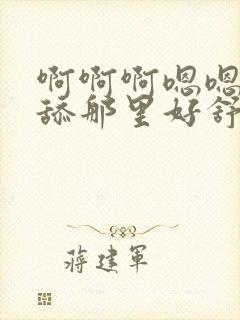 啊啊啊嗯嗯
舔那里好舒
蒋建军